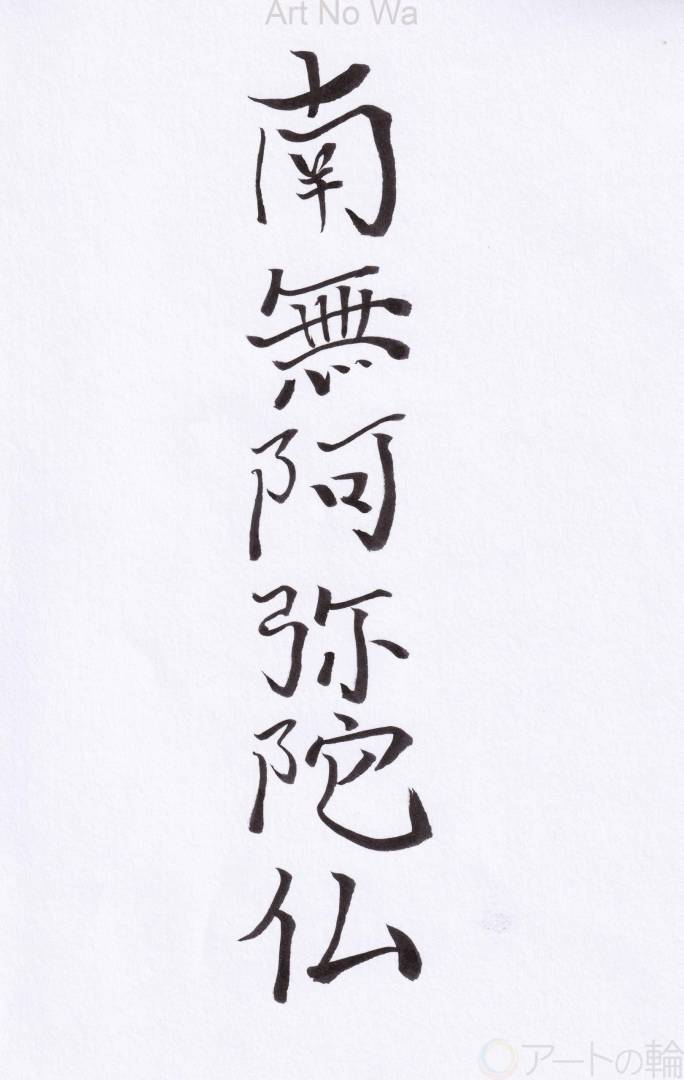 Art No Wa
南無阿弥陀仏
アートの輪